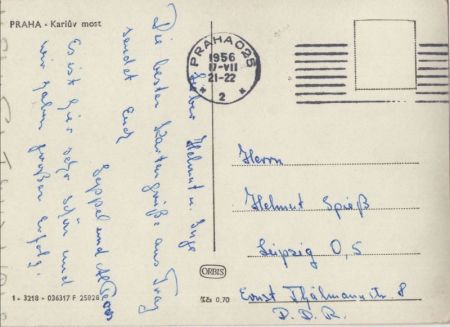 PRAHA - Karlův most
PRAHA 025
1956
17-VII
21-22
* 2 *
Lieber Helmut u. Inge
Die besten Kartengrüße aus Prag
sendet Euch
Seppel und
Es ist hier sehr schön und
wir haben großen Erfolg.
Herrn
Helmut Spieß
Leipzig O,5
Ernst Thälmannstr. 8
D.D.R.
ORBIS
1 - 3218 - 036317 F 25828
Kčs 0,70